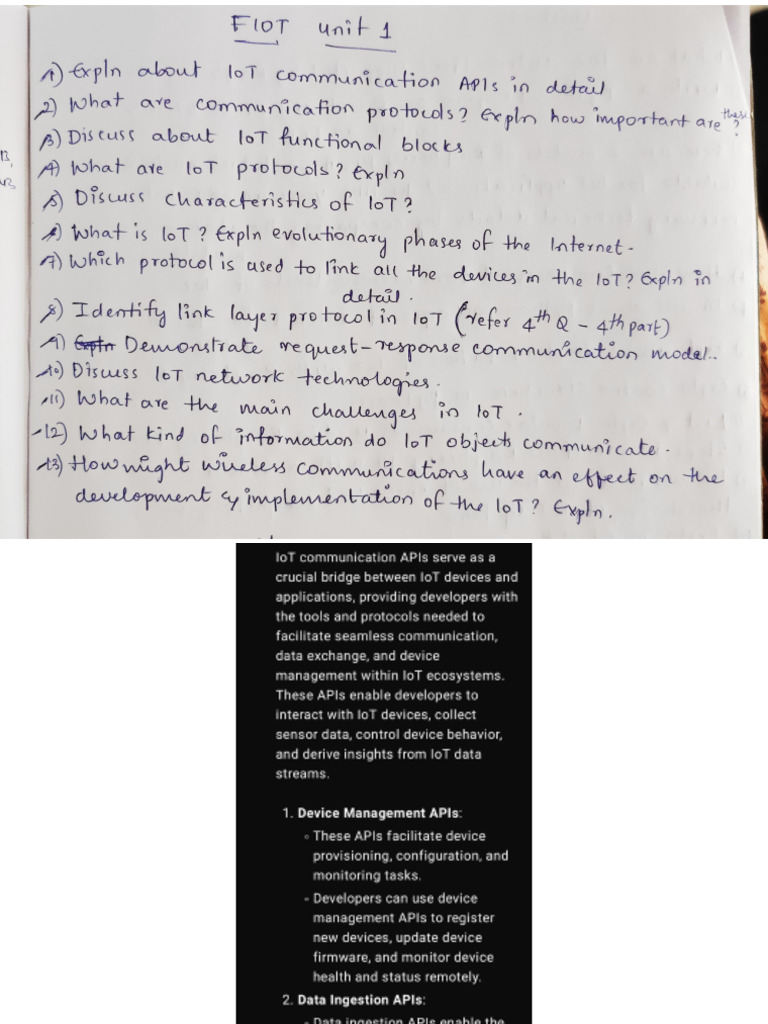 FIOT unit 1
1) Expln about IoT communication APIs in detail
2) What are communication protocols? Expln how important are these?
3) Discuss about IoT functional blocks
4) What are IoT protocols? Expln
5) Discuss characteristics of IoT?
6) What is IoT? Expln evolutionary phases of the Internet.
7) Which protocol is used to link all the devices in the IoT? Expln in
detail.
8) Identify link layer protocol in IoT (refer 4th Q - 4th part)
9) Expln Demonstrate request-response communication model..
10) Discuss IoT network technologies.
11) What are the main challenges in IoT.
12) What kind of information do IoT objects communicate.
13) How might wireless communications have an effect on the
development & implementation of the IoT? Expln.
IoT communication APIs serve as a
crucial bridge between IoT devices and
applications, providing developers with
the tools and protocols needed to
facilitate seamless communication,
data exchange, and device
management within IoT ecosystems.
These APIs enable developers to
interact with IoT devices, collect
sensor data, control device behavior,
and derive insights from IoT data
streams.
1. Device Management APIs:
◦ These APIs facilitate device
provisioning, configuration, and
monitoring tasks.
◦ Developers can use device
management APIs to register
new devices, update device
firmware, and monitor device
health and status remotely.
2. Data Ingestion APIs:
◦ Data ingestion APIs enable the